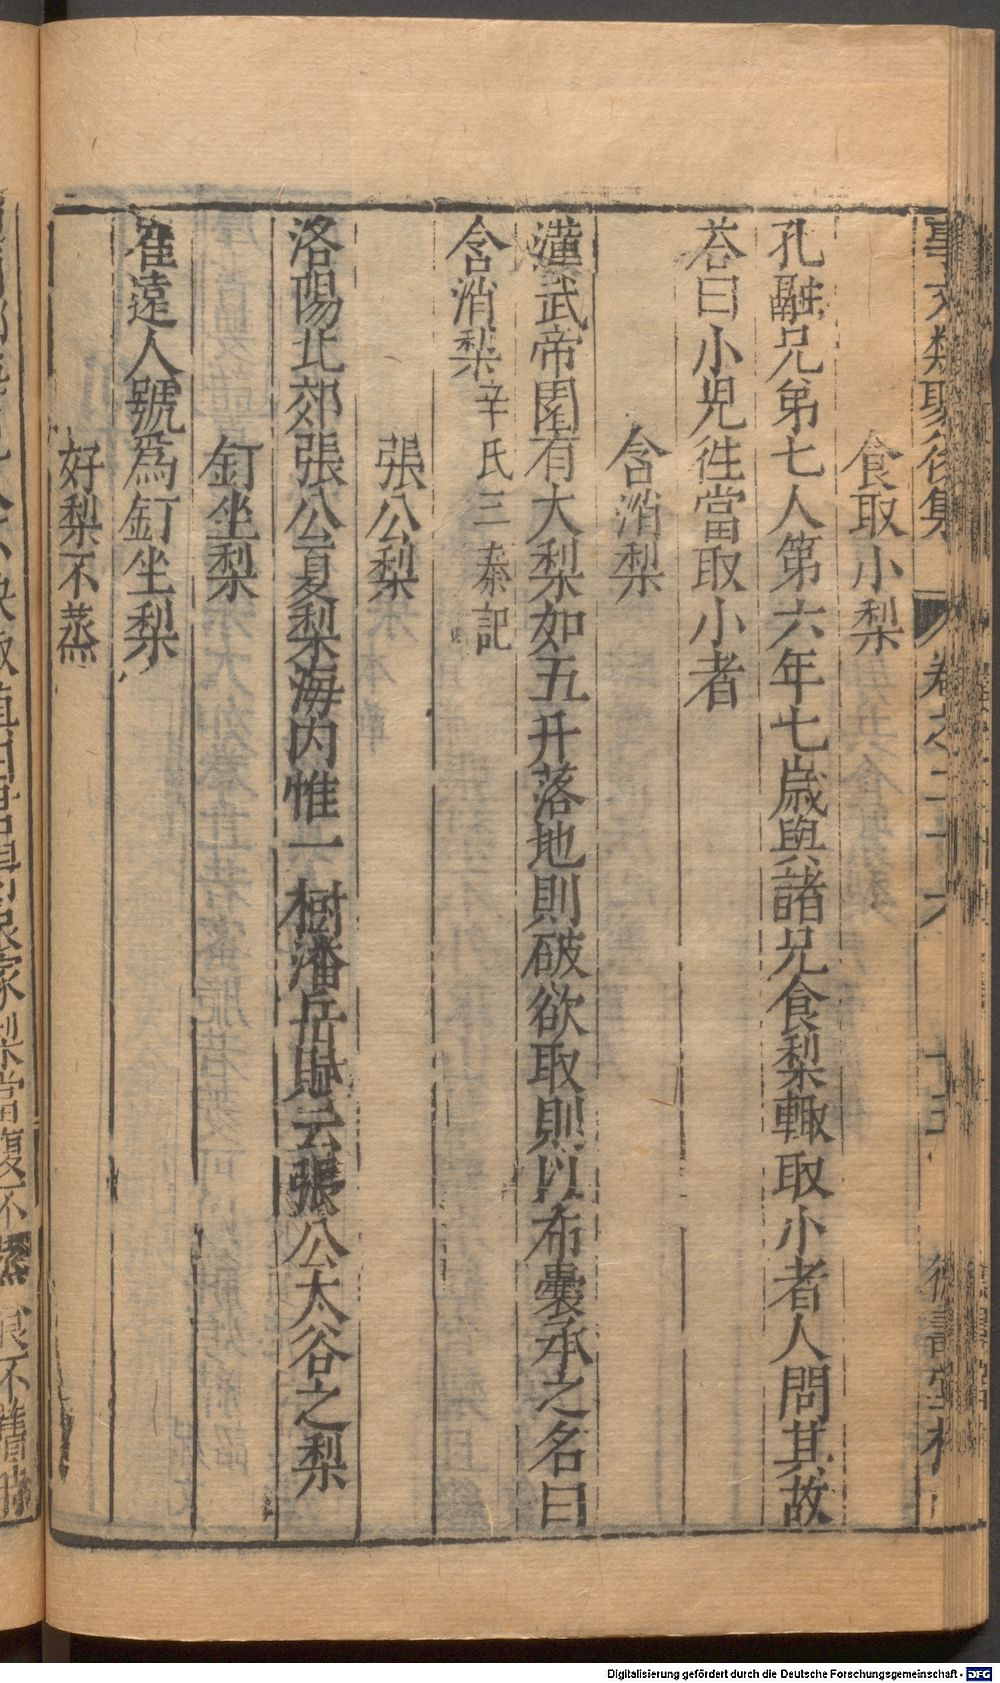 事文類聚後集 卷之二十六 十五 德壽堂梓
食取小梨
孔融兄弟七人第六年七歲與諸兄食梨輙取小者人問其故
荅曰小兒徃當取小者
含消梨
漢武帝園有大梨如五升落地則破欲取則以布囊承之名曰
含消梨辛氏三秦記
張公梨
洛陽北郊張公夏梨海内惟一樹潘岳賦云張公大谷之梨
釘坐梨
崔遠人號爲釘坐梨
好梨不蒸
Digitalisierung gefördert durch die Deutsche Forschungsgemeinschaft - DFG